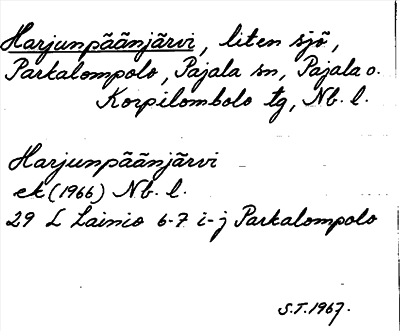 Harjunpäänjärvi, liten sjö,
Parkalompolo, Pajala sn, Pajala o.
Korpilombolo tg, Nb. l.
Harjunpäänjärvi
ek (1966) Nb. l.
29 L Lainio 6-7 i-j Parkalompolo
S.T. 1967.